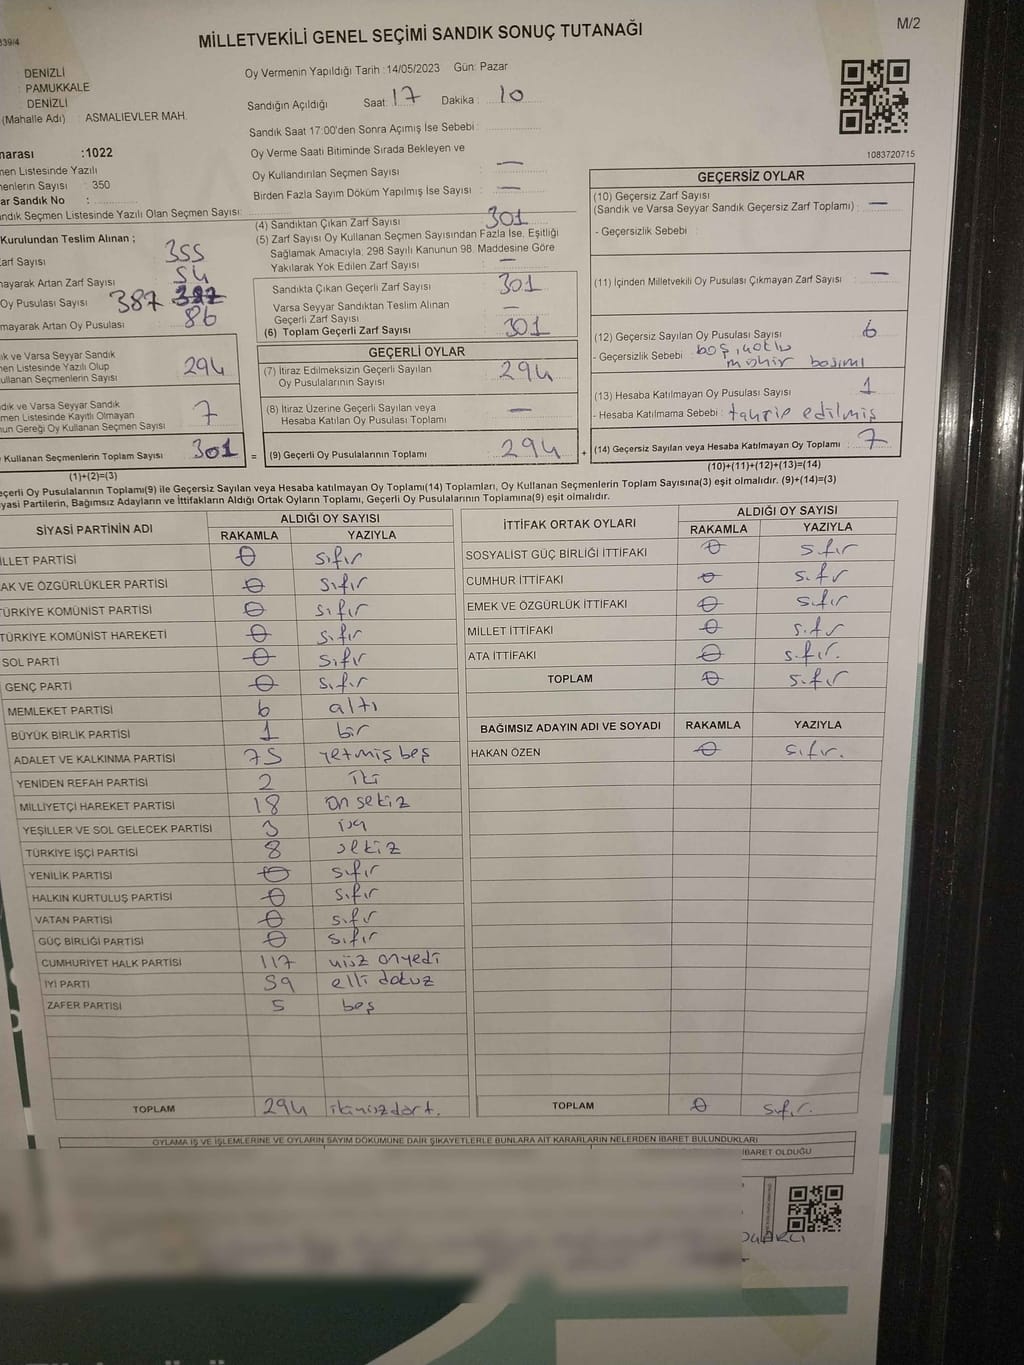 839/4
MİLLETVEKİLİ GENEL SEÇİMİ SANDIK SONUÇ TUTANAĞI
M/2
DENİZLİ
: PAMUKKALE
DENİZLİ
(Mahalle Adı) : ASMALIEVLER MAH.
:1022
Yazılı
Sayısı : 350
Sandık No :
Seçmen Listesinde Yazılı Olan Seçmen Sayısı:
Oy Vermenin Yapıldığı Tarih :14/05/2023 Gün: Pazar
Sandığın Açıldığı Saat: 17 Dakika : 10
Sandık Saat 17:00'den Sonra Açımış İse Sebebi :
Oy Verme Saati Bitiminde Sırada Bekleyen ve
Oy Kullandırılan Seçmen Sayısı : —
Birden Fazla Sayım Döküm Yapılmış İse Sayısı : —
1083720715
Kurulundan Teslim Alınan ;
Sayısı : 355
Artan Zarf Sayısı : 54
Oy Pusulası Sayısı 387 387
Artan Oy Pusulası : 86
ve Varsa Seyyar Sandık
Listesinde Yazılı Olup
Seçmenlerin Sayısı 294
ve Varsa Seyyar Sandık
Listesinde Kayıtlı Olmayan
Gereği Oy Kullanan Seçmen Sayısı 7
Kullanan Seçmenlerin Toplam Sayısı 301
(1)+(2)=(3)
(4) Sandıktan Çıkan Zarf Sayısı : 301
(5) Zarf Sayısı Oy Kullanan Seçmen Sayısından Fazla İse, Eşitliği
Sağlamak Amacıyla, 298 Sayılı Kanunun 98. Maddesine Göre
Yakılarak Yok Edilen Zarf Sayısı : —
Sandıkta Çıkan Geçerli Zarf Sayısı : 301
Varsa Seyyar Sandıktan Teslim Alınan
Geçerli Zarf Sayısı : —
(6) Toplam Geçerli Zarf Sayısı : 301
GEÇERLİ OYLAR
(7) İtiraz Edilmeksizin Geçerli Sayılan
Oy Pusulalarının Sayısı : 294
(8) İtiraz Üzerine Geçerli Sayılan veya
Hesaba Katılan Oy Pusulaları Toplamı : —
= (9) Geçerli Oy Pusulalarının Toplamı : 294 +
GEÇERSİZ OYLAR
(10) Geçersiz Zarf Sayısı
(Sandık ve Varsa Seyyar Sandık Geçersiz Zarf Toplamı) : —
- Geçersizlik Sebebi :
(11) İçinden Milletvekili Oy Pusulası Çıkmayan Zarf Sayısı : —
(12) Geçersiz Sayılan Oy Pusulası Sayısı : 6
- Geçersizlik Sebebi : boş, çoklu
mühür basımı
(13) Hesaba Katılmayan Oy Pusulası Sayısı : 1
- Hesaba Katılmama Sebebi : tahrip edilmiş
(14) Geçersiz Sayılan veya Hesaba Katılmayan Oy Toplamı : 7
(10)+(11)+(12)+(13)=(14)
Geçerli Oy Pusulalarının Toplamı(9) ile Geçersiz Sayılan veya Hesaba katılmayan Oy Toplamı(14) Toplamları, Oy Kullanan Seçmenlerin Toplam Sayısına(3) eşit olmalıdır. (9)+(14)=(3)
Siyasi Partilerin, Bağımsız Adayların ve İttifakların Aldığı Ortak Oyların Toplamı, Geçerli Oy Pusulalarının Toplamına(9) eşit olmalıdır.
SİYASİ PARTİNİN ADI ALDIĞI OY SAYISI
RAKAMLA YAZIYLA
MİLLET PARTİSİ 0 sıfır
HAK VE ÖZGÜRLÜKLER PARTİSİ 0 sıfır
TÜRKİYE KOMÜNİST PARTİSİ 0 sıfır
TÜRKİYE KOMÜNİST HAREKETİ 0 sıfır
SOL PARTİ 0 sıfır
GENÇ PARTİ 0 sıfır
MEMLEKET PARTİSİ 6 altı
BÜYÜK BİRLİK PARTİSİ 1 bir
ADALET VE KALKINMA PARTİSİ 75 yetmiş beş
YENİDEN REFAH PARTİSİ 2 iki
MİLLİYETÇİ HAREKET PARTİSİ 18 on sekiz
YEŞİLLER VE SOL GELECEK PARTİSİ 3 üç
TÜRKİYE İŞÇİ PARTİSİ 8 sekiz
YENİLİK PARTİSİ 0 sıfır
HALKIN KURTULUŞ PARTİSİ 0 sıfır
VATAN PARTİSİ 0 sıfır
GÜÇ BİRLİĞİ PARTİSİ 0 sıfır
CUMHURİYET HALK PARTİSİ 117 yüz onyedi
İYİ PARTİ 59 elli dokuz
ZAFER PARTİSİ 5 beş
TOPLAM 294
İTTİFAK ORTAK OYLARI ALDIĞI OY SAYISI
RAKAMLA YAZIYLA
SOSYALİST GÜÇ BİRLİĞİ İTTİFAKI 0 sıfır
CUMHUR İTTİFAKI 0 sıfır
EMEK VE ÖZGÜRLÜK İTTİFAKI 0 sıfır
MİLLET İTTİFAKI 0 sıfır
ATA İTTİFAKI 0 sıfır.
TOPLAM 0 sıfır
BAĞIMSIZ ADAYIN ADI VE SOYADI RAKAMLA YAZIYLA
HAKAN ÖZEN 0 sıfır.
TOPLAM 0 sıfır.
OYLAMA İŞ VE İŞLEMLERİNE VE OYLARIN SAYIM DÖKÜMÜNE DAİR ŞİKAYETLERLE BUNLARA AİT KARARLARIN NELERDEN İBARET BULUNDUKLARI
İBARET OLDUĞU